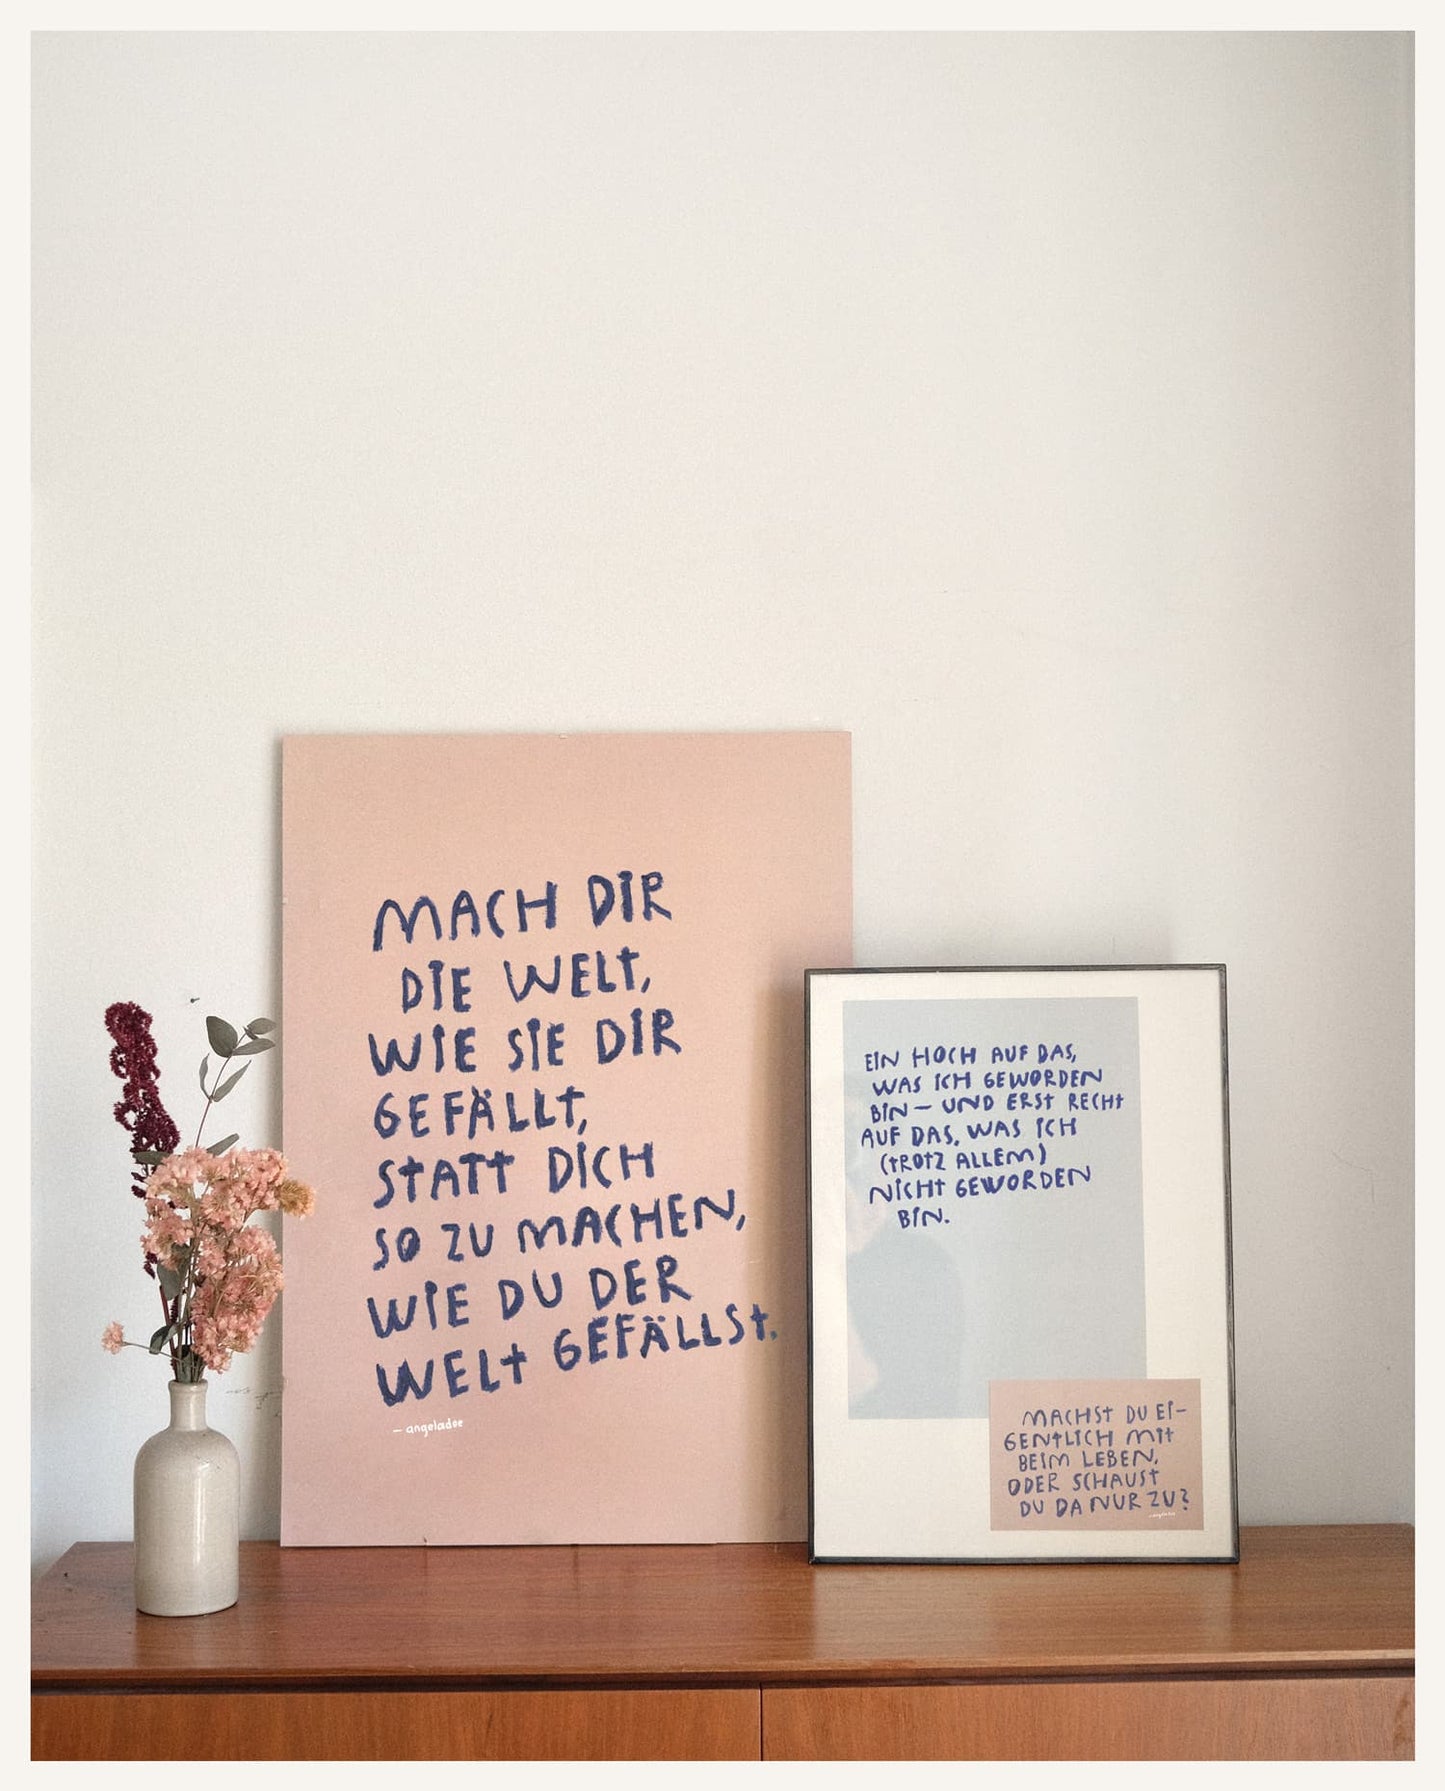 MACH DIR
DIE WELT,
WIE SIE DIR
GEFÄLLT,
STATT DICH
SO ZU MACHEN,
WIE DU DER
WELT GEFÄLLST.
— angeladoe
EIN HOCH AUF DAS,
WAS ICH GEWORDEN
BIN — UND ERST RECHT
AUF DAS, WAS ICH
(TROTZ ALLEM)
NICHT GEWORDEN
BIN.
MACHST DU EI-
GENTLICH MIT
BEIM LEBEN,
ODER SCHAUST
DU DA NUR ZU?